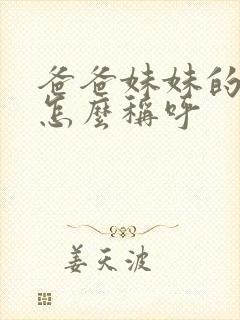 爸爸妹妹的
怎麼稱呼
姜天波